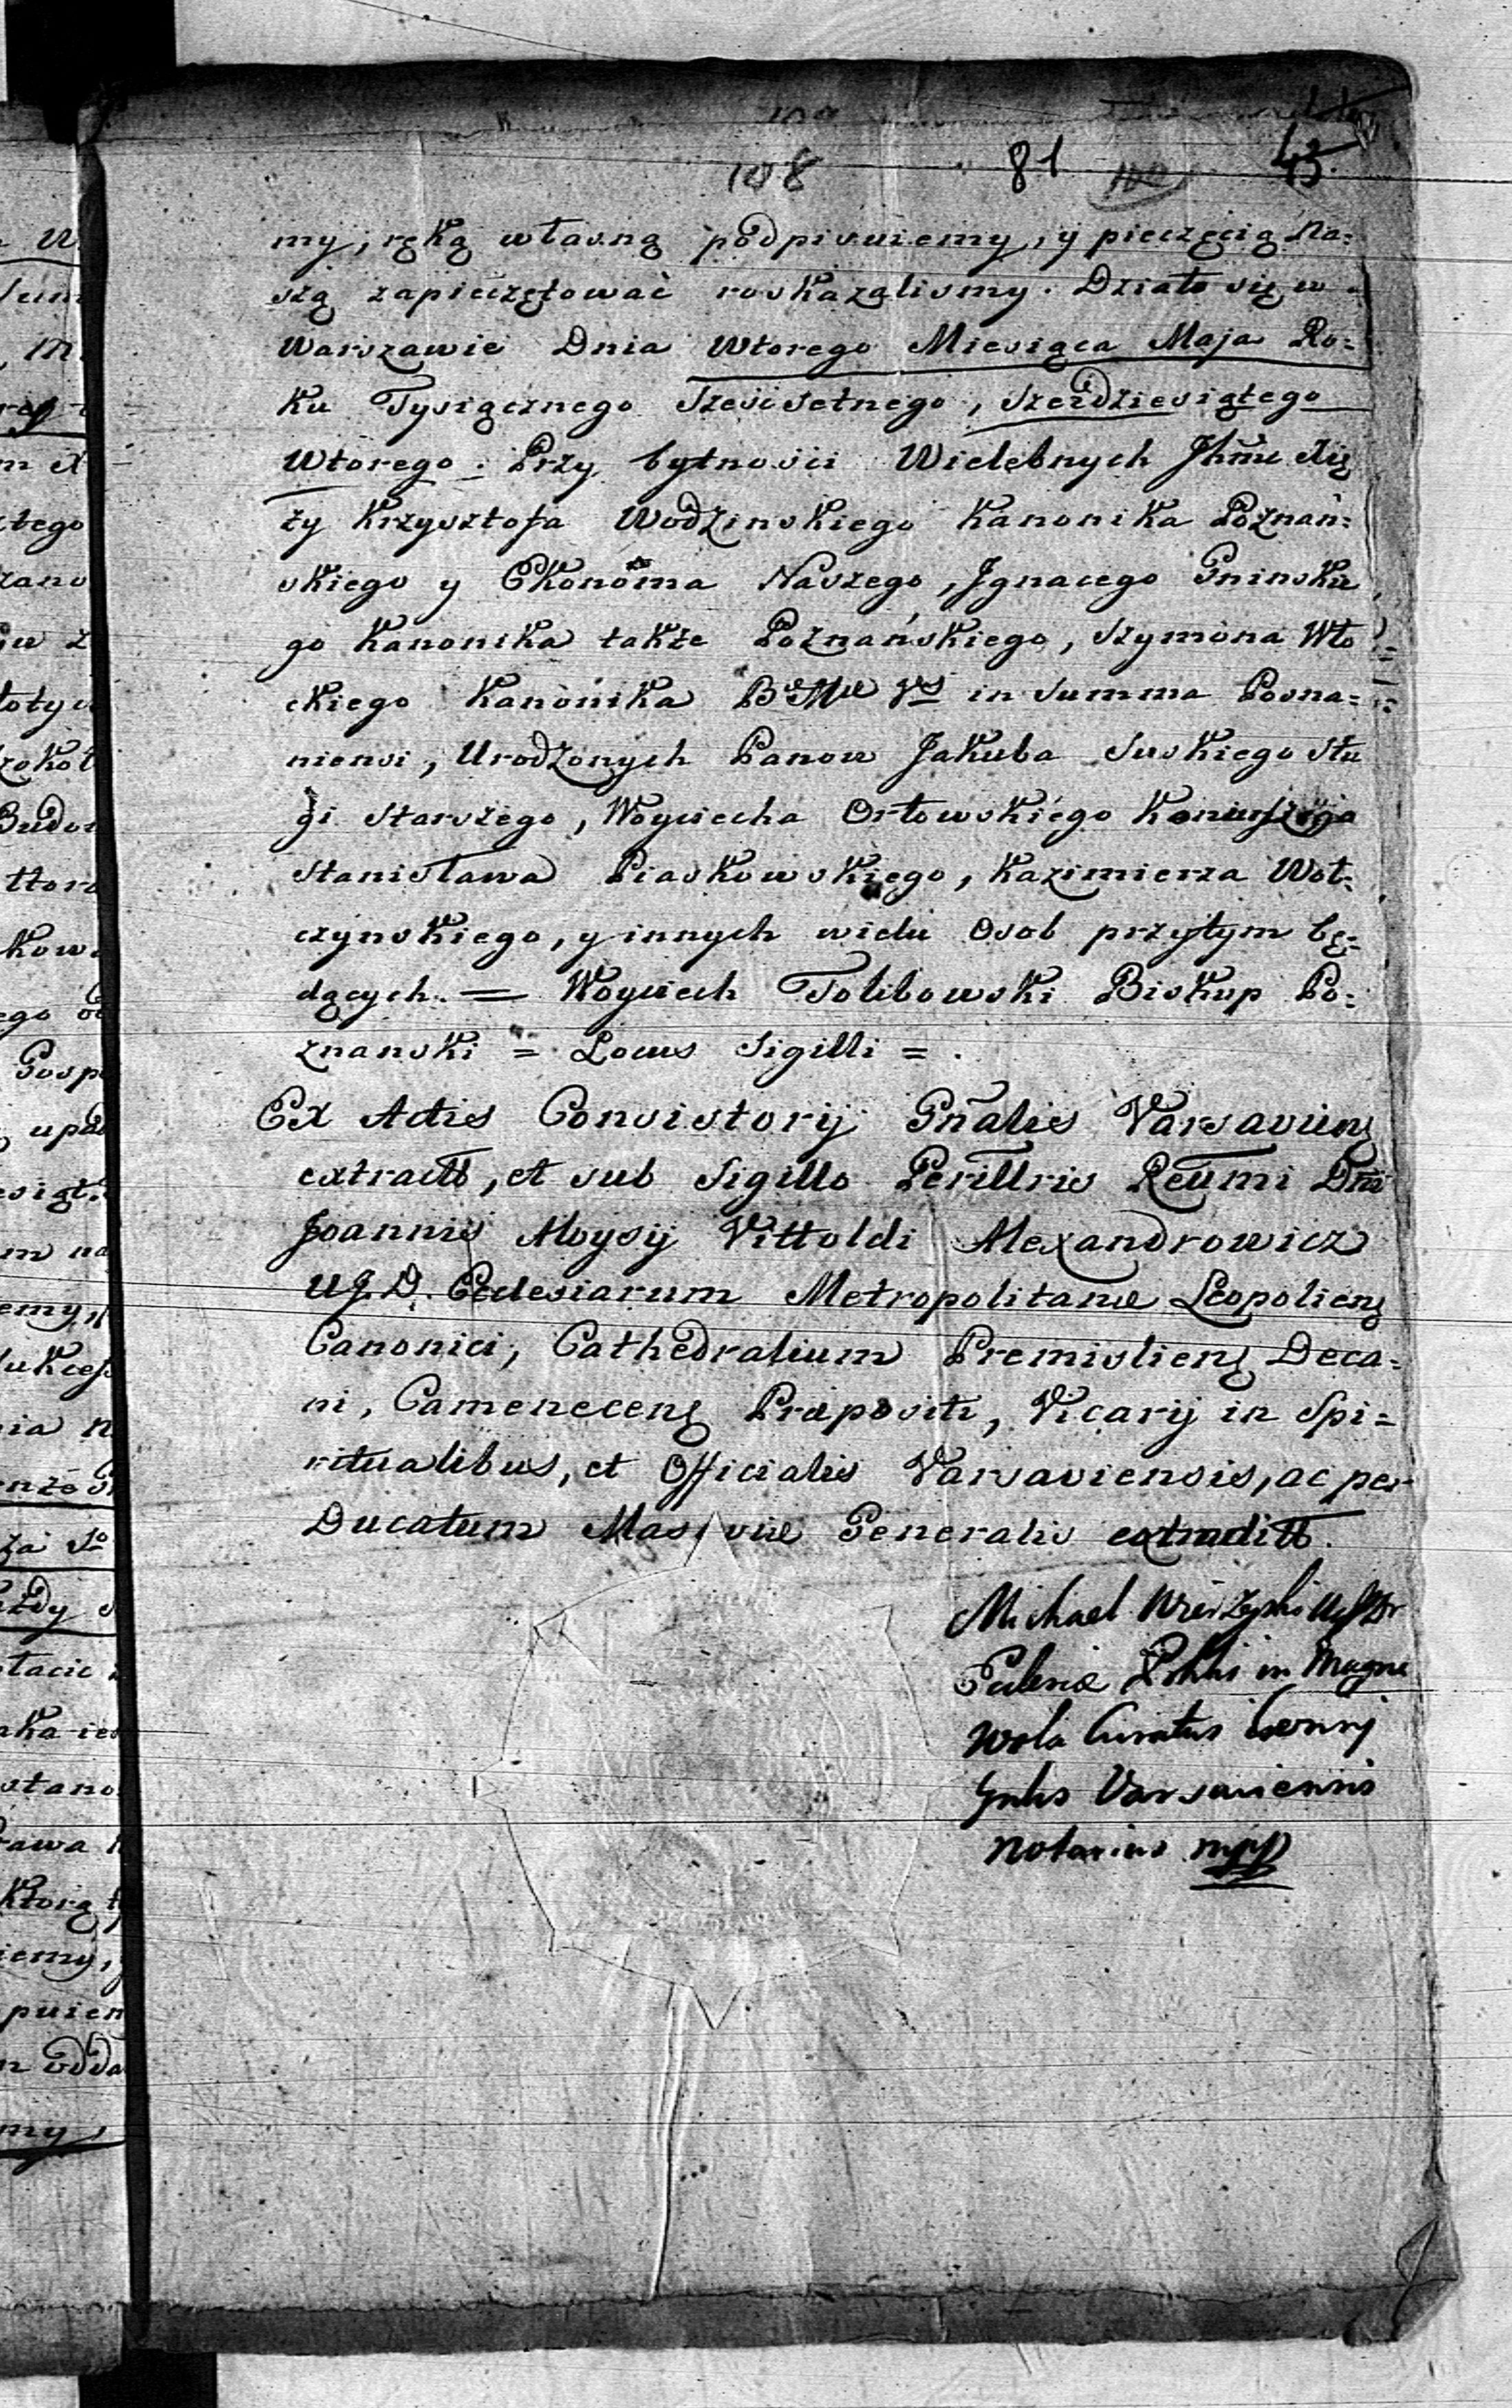 108 81 100 43.
my, ręką własną podpisuiemy, y pieczęcią Na=
szą zapieczętować roskazalismy. Działo się w
Warszawie Dnia Wtorego Miesiąca Maja Ro=
ku Tysiącznego Sześćsetnego, Szesdziesiątego
Wtorego. Przy bytnosci Wielebnych Jhmc Xię
ży Krzysztofa Wodzinskiego Kanonika Poznań=
skiego y Ekonoma Naszego, Jgnacego Gninskie
go Kanonika także Poznańskiego, Szymona Wło
ckiego Kanonika B Mae Vs in Summa Posna=
niensi, Urodzonych Panow Jakuba Suskiego Słu
gi Starszego, Woyciecha Orłowskiego Koniuszego
Stanisława Piaskowskiego, Kazimierza Woł=
czynskiego, y innych wielu Osob przytym bę=
dących. = Woyciech Tolibowski Biskup Po=
znanski = Locus Sigilli = .
Ex Actis Consistorij Gnalis Varsavien
extractt, et sub Sigillo Perillris Reumi Dni
Joannis Aloysij Vittoldi Alexandrowicz
U.J.D. Ecclesiarum Metropolitanæ Leopolien
Canonici, Cathedralium Premislien Deca=
ni, Camenecen Præpositi, Vicarij in Spi=
ritualibus, et Officialis Varsaviensis, ac per
Ducatum Masoviæ Generalis extraditt.
Michael UJDr
in Magna
Wola Curatus
Gnlis Varsaviensis
Notarius mpp